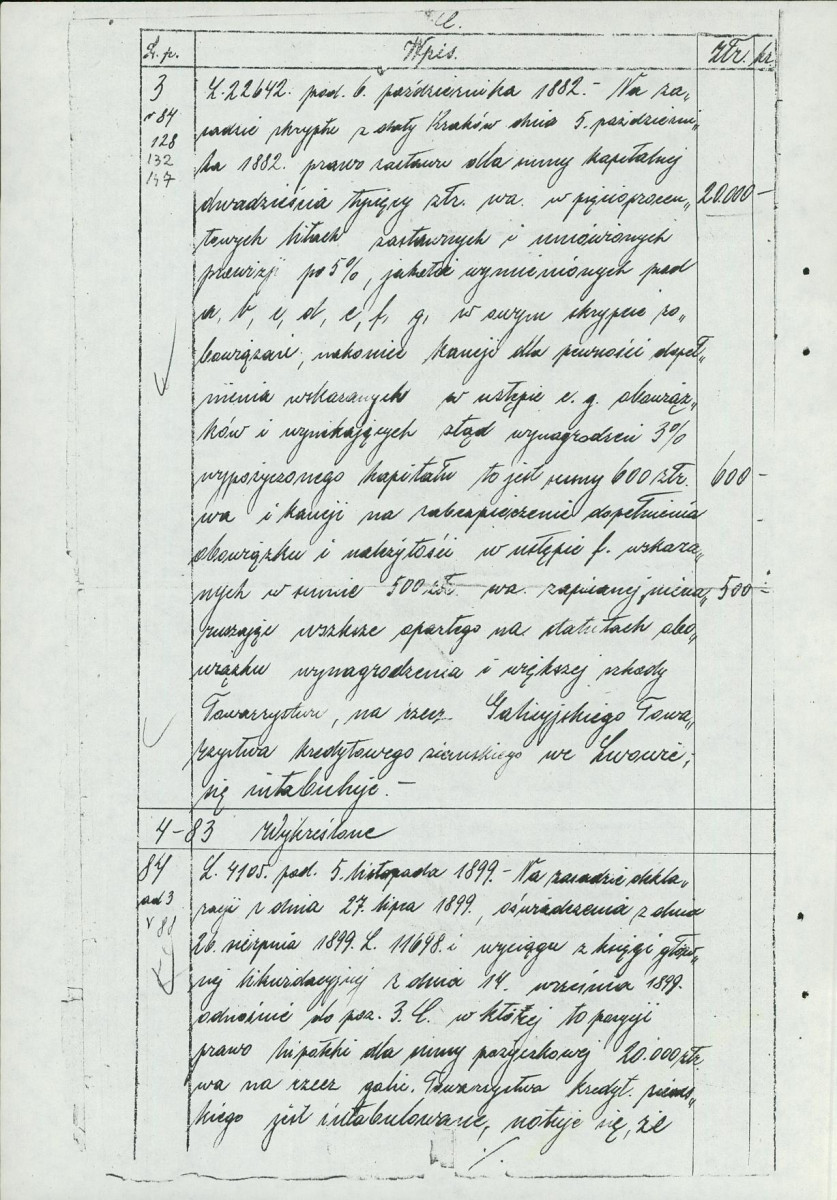 C.
L. p. Wpis. złr. kr
3 L. 22642. pod. 6. października 1882. - Na za„
v 84 sadzie skryptu z daty Kraków dnia 5. październi„
128 ka 1882. prawo zastawu dla sumy kapitalnej
132
147 dwadzieścia tysięcy złr. wa. w pięcioprocen„ 20.000 -
towych listach zastawnych i umówionych
prowizji po 5%, jakoteż wymienionych pod
a, b, c, d, e, f, g, w owym skrypcie zo„
bowiązań, nakoniec kaucji dla pewności dopeł„
nienia wskazanych w ustępie e. g. obowiąz„
ków i wynikających stąd wynagrodzeń 3%
wypożyczonego kapitału to jest sumy 600 złr. 600 -
wa i kaucji na zabezpieczenie dopełnienia -
obowiązku i należytości w ustępie f. wskaza„
nych w sumie 500 złr. wa. zapisanej, niena„ 500 -
ruszając wszakże opartego na statutach obo„
wiązku wynagrodzenia i większej szkody
Towarzystwu, na rzecz Galicyjskiego Towa„
rzystwa kredytowego ziemskiego we Lwowie,
się intabuluje. -
4-83 Wykreślone
84 L. 4105. pod. 5. listopada 1899. - Na zasadzie dekla„
ad 3 racji z dnia 27. lipca 1899., oświadczenia z dnia
v 88 26. sierpnia 1899. L. 11698. i wyciągu z księgi głów„
nej likwidacyjnej z dnia 14. września 1899.
odnośnie do poz. 3. C. w której to pozycji
prawo hipoteki dla sumy pożyczkowej 20.000 złr.
wa na rzecz galic. Towarzystwa kredyt. ziems„
kiego jest intabulowane, notuje się, że
./.